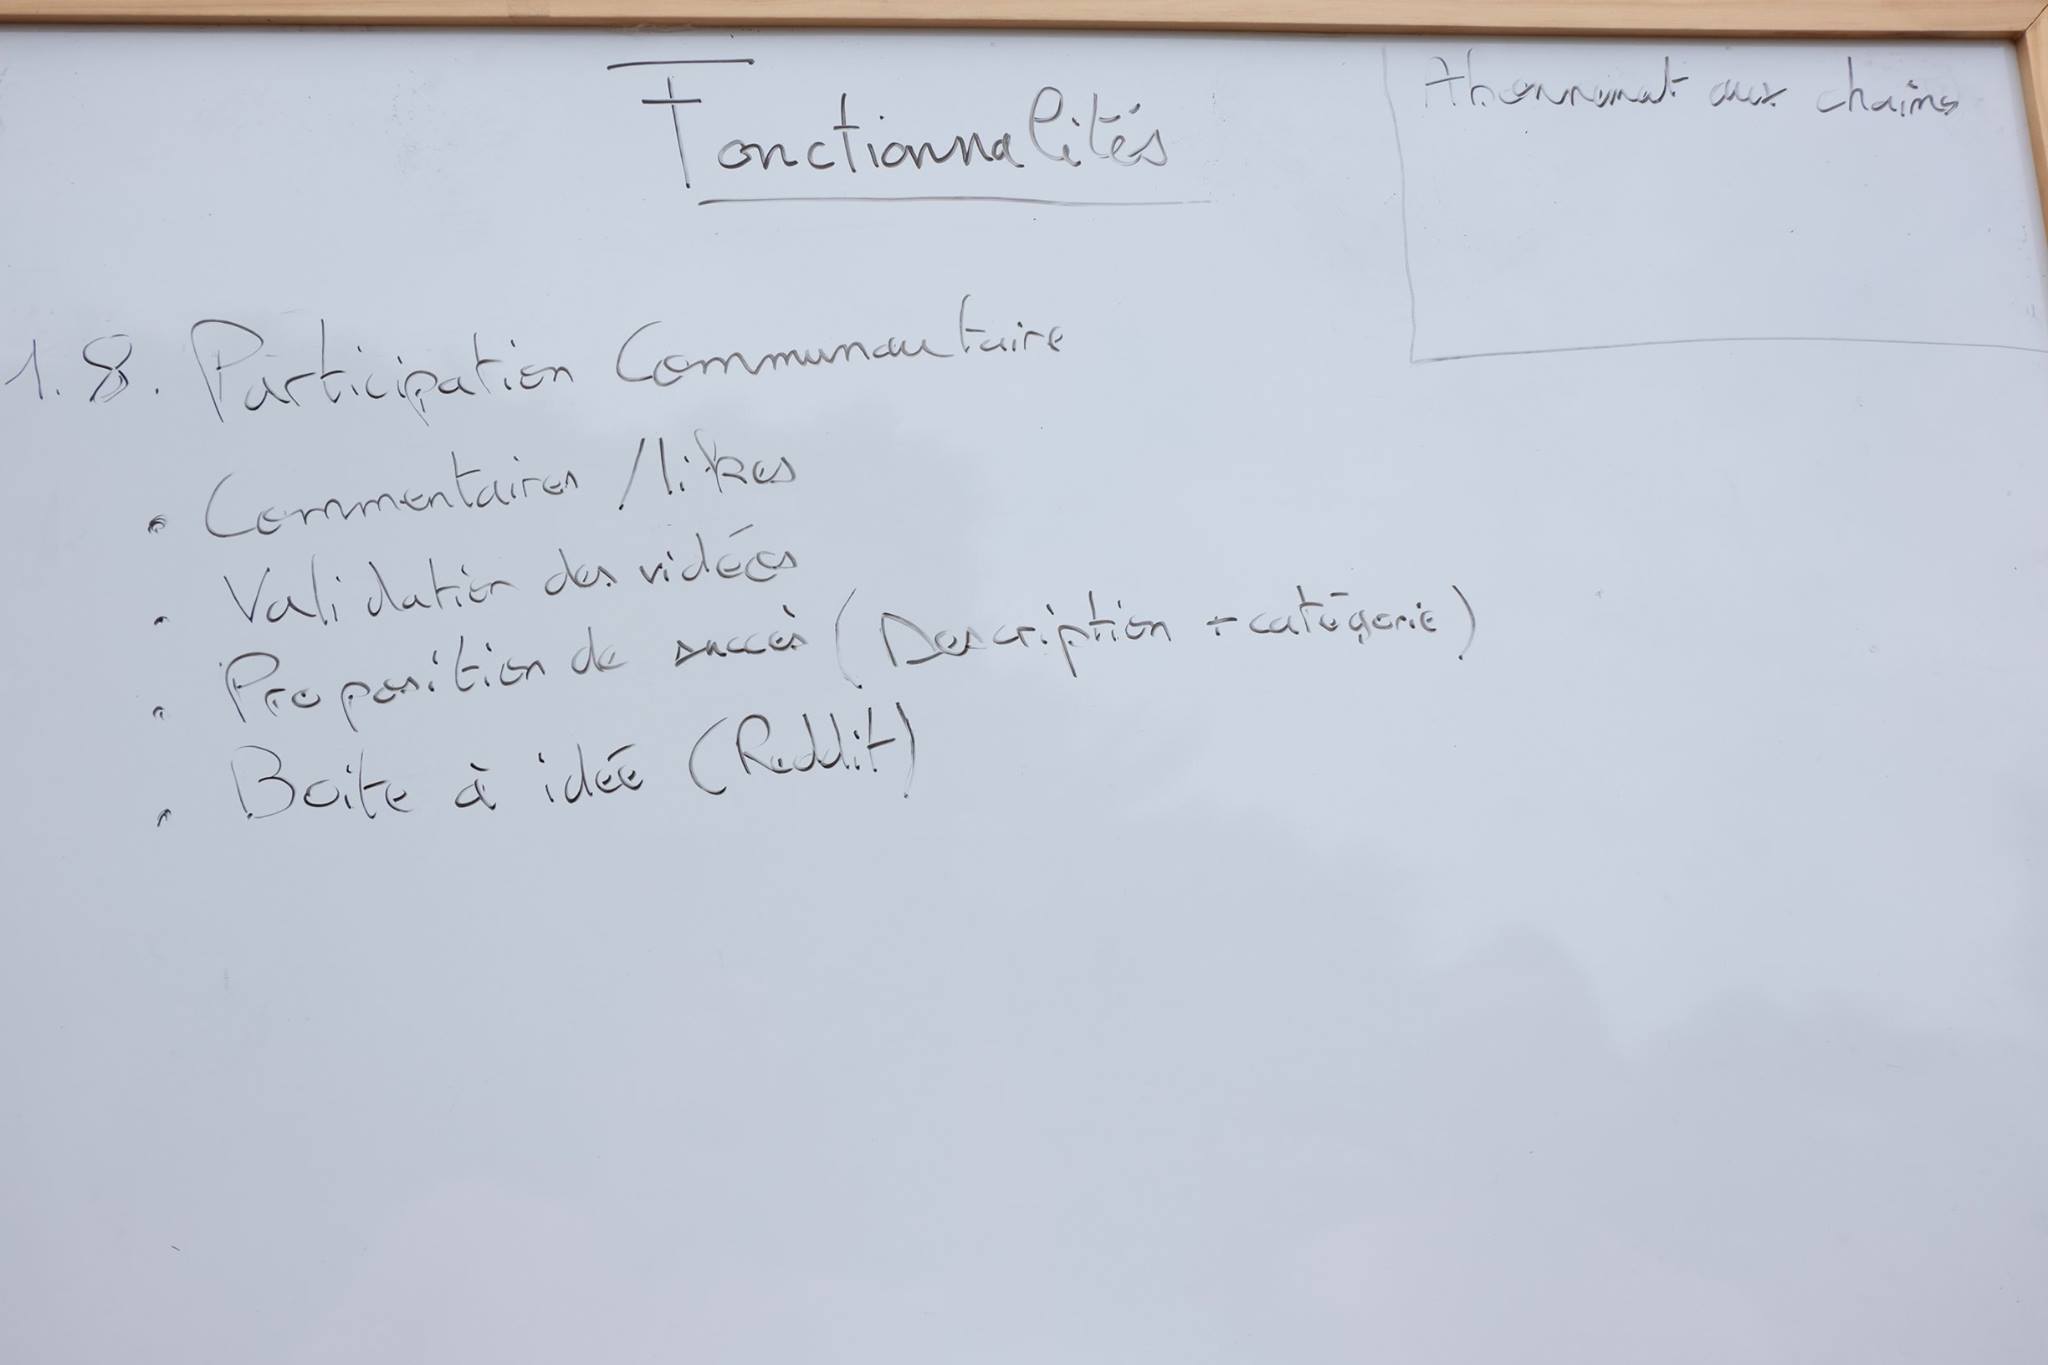 Fonctionnalités
Abonnement aux chaînes
1.8. Participation Communautaire
• Commentaires / likes
• Validation des vidéos
• Proposition de succès (Description + catégorie)
• Boite à idée (Reddit)